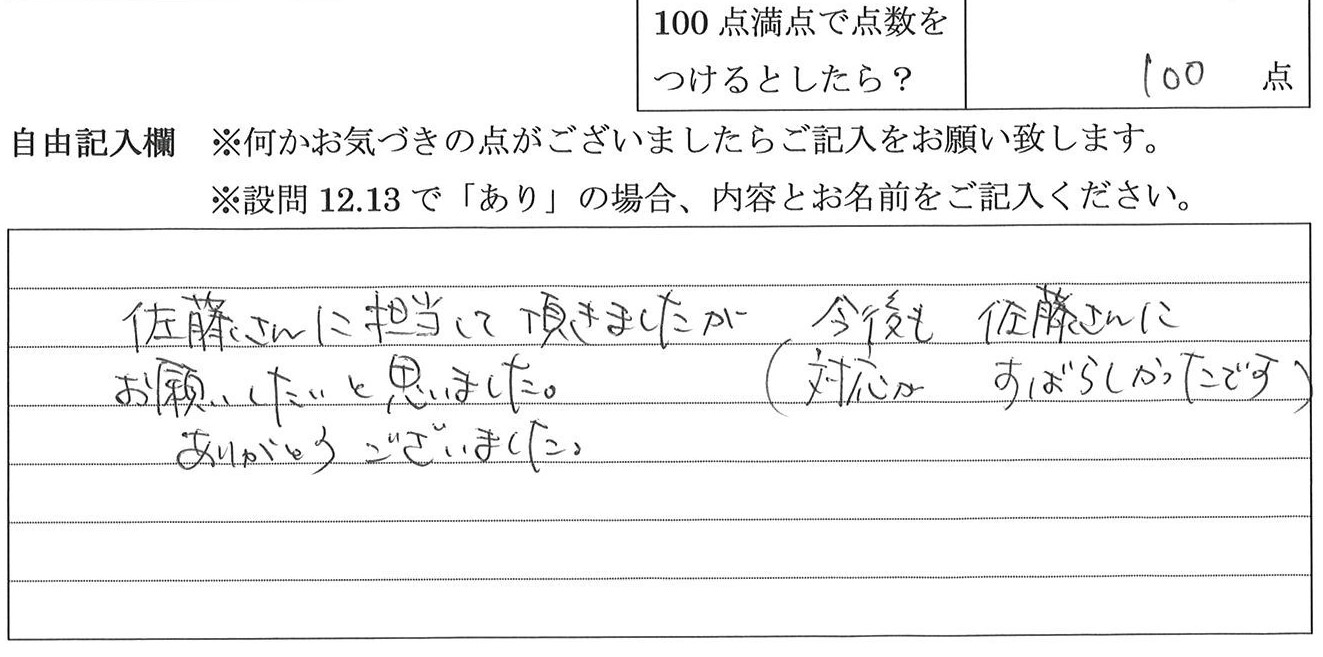 100 点満点で点数を
つけるとしたら？
100 点
自由記入欄 ※何かお気づきの点がございましたらご記入をお願い致します。
※設問 12.13 で「あり」の場合、内容とお名前をご記入ください。
佐藤さんに担当して頂きましたが 今後も 佐藤さんに
お願いしたいと思いました。 (対応が すばらしかったです)
ありがとうございました。